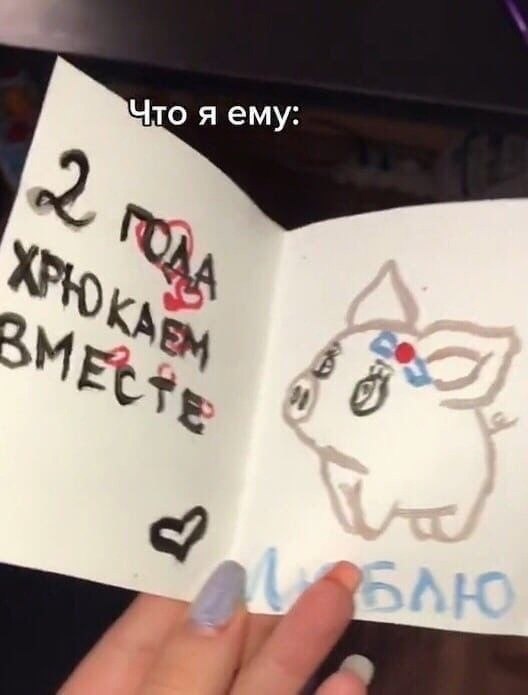 Что я ему:
2 ГОДА
ХРЮКАЕМ
ВМЕСТЕ
ЛЮБЛЮ